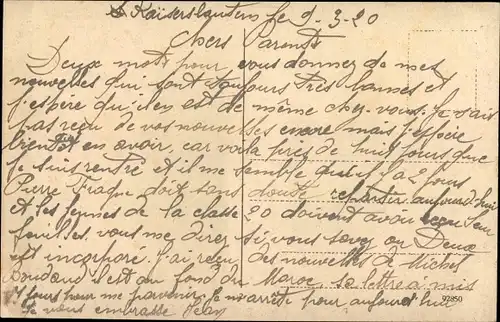 Kaiserslautern le 9-3-20
Chers Parents
Deux mots pour vous donner de mes
nouvelles qui sont toujours très bonnes et
j'espère qu'il en est de même chez vous. Je n'ai
pas reçu de vos nouvelles encore mais j'espère
bientôt en avoir, car voila près de huit jours que
je suis rentré et il me semble qu'il y a 2 jours
Pierre doit sans doute repartir aujourd'hui
et les jeunes de la classe 20 doivent avoir reçu leur
feuilles, vous me direz si vous savez ou Deux
est incorporé. J'ai reçu des nouvelles de Michel
il est au fond du Maroc sa lettre a mis
jours pour me parvenir. Je m'arrête pour aujourd'hui
Je vous embrasse Jean
97850